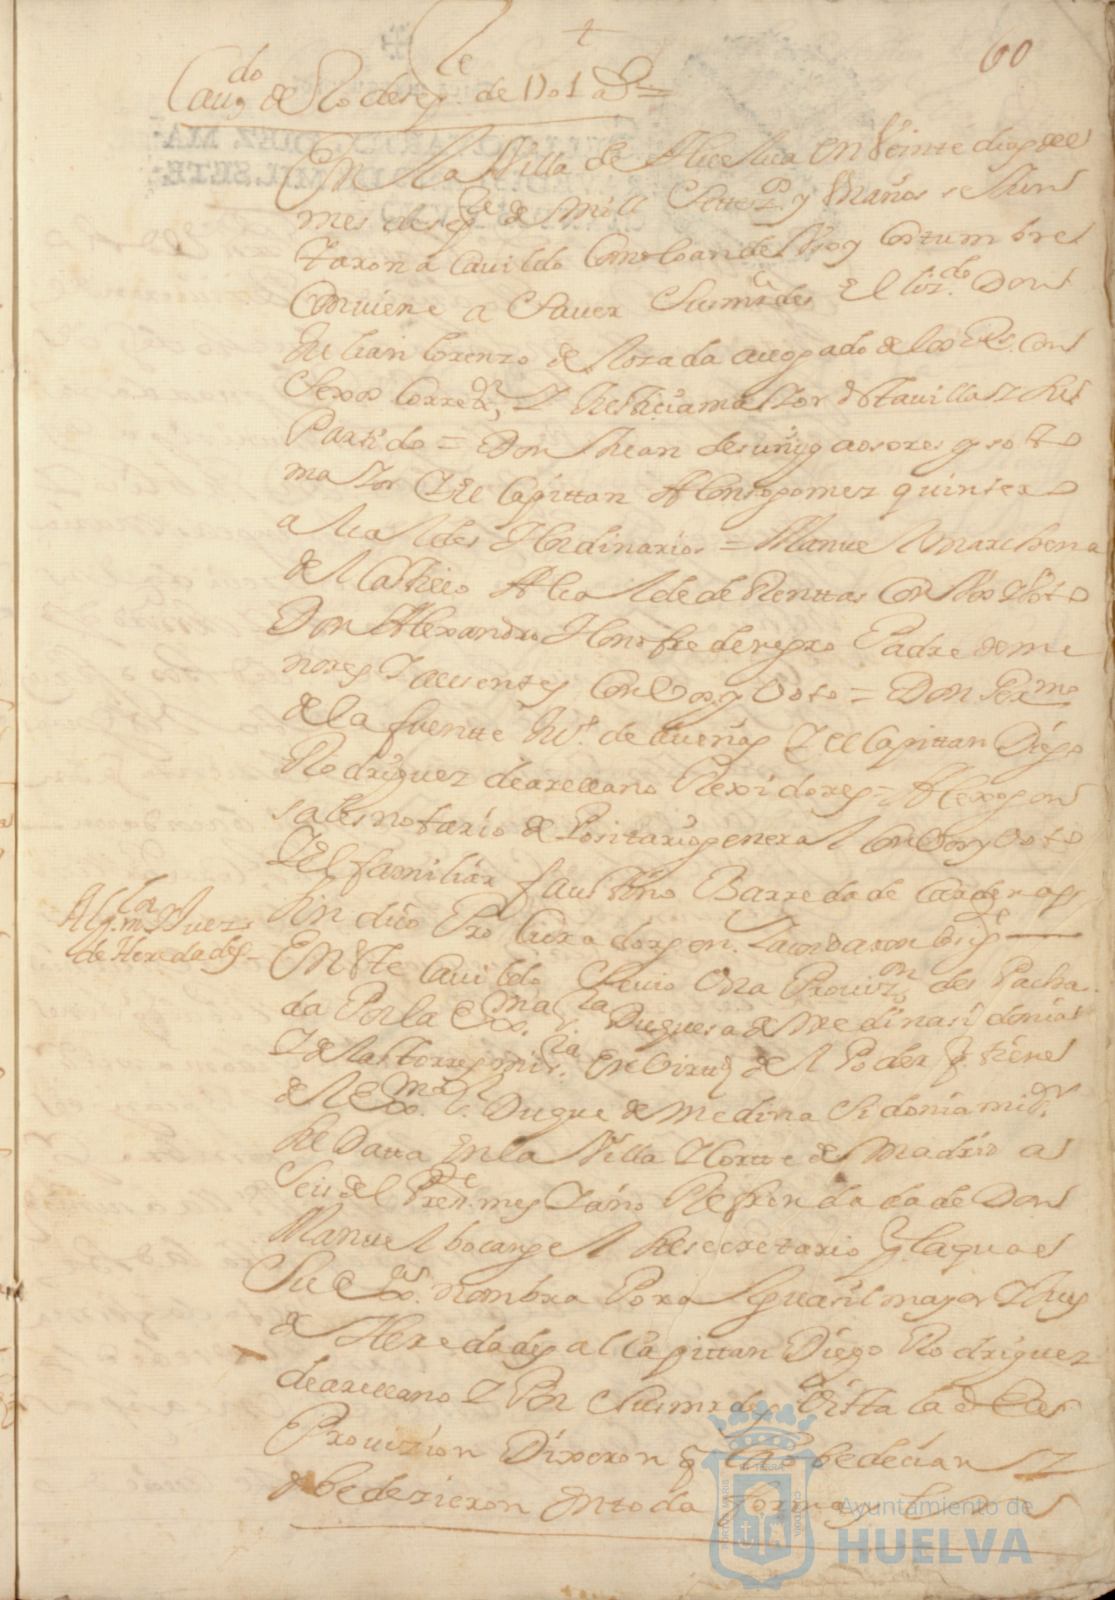 60
Cavdo de 20 de septe de 1701 as
En la Villa de Huelva en Veinte dias del
mes de septe de mill Settesos y Un años se Jun
taron a Cavildo Como lo an de Uso y Costumbre
Conviene a Saver Sus mrdes El lizdo Don
Julian Lorenzo de Rozada avogado de los Rs. Con
sexos Corredor y Justicia mayor de esta villa y Su
Partido = Don Juan de suñiga osores y soto
mayor Y El Capittan Alonso gomez quintero
alcaldes Hordinarios = Manuel marchena
del Castillo Alcalde de Renttas Con Vos y Voto
Don Alexandro Honofre de negro Padre de me
nores Y ausentes Con Vos y Voto = Don Germo
de la fuentte de dueñas Y el Capittan Diego
Rodriguez de arellano Rexidores = Alexo gon
sales notario de Positario general Con Vos y Voto
Y El familiar faustino Barreda de Cardenas
Sindico Procurador gen. Y acordaron lo sigte
Alglmor Juez
de Heredades
En Este Cavildo Se vio Una Provizon des Pacha
da Por la Exma Sra Duquesa de Medina sidonia
Y de las torres mi sra En Virtud del Poder q. tiene
del Exmo Sr Duque de Medina Sidonia mi Sr
Su Datta En la Villa Y Corte de Madrid a
Seis del Preste mes Y año Refrendada de Don
Manuel bocangel Su secretario Por la qual
Su Exa. nombra Por Alguasil mayor Y Juez
de Heredades al Capittan Diego Rodriguez
de arellano Y Por Sus mrdes Vista la dha
Provizion Dixeron q la obedecian Y
obedezieron En toda forma
Ayuntamiento de
HUELVA